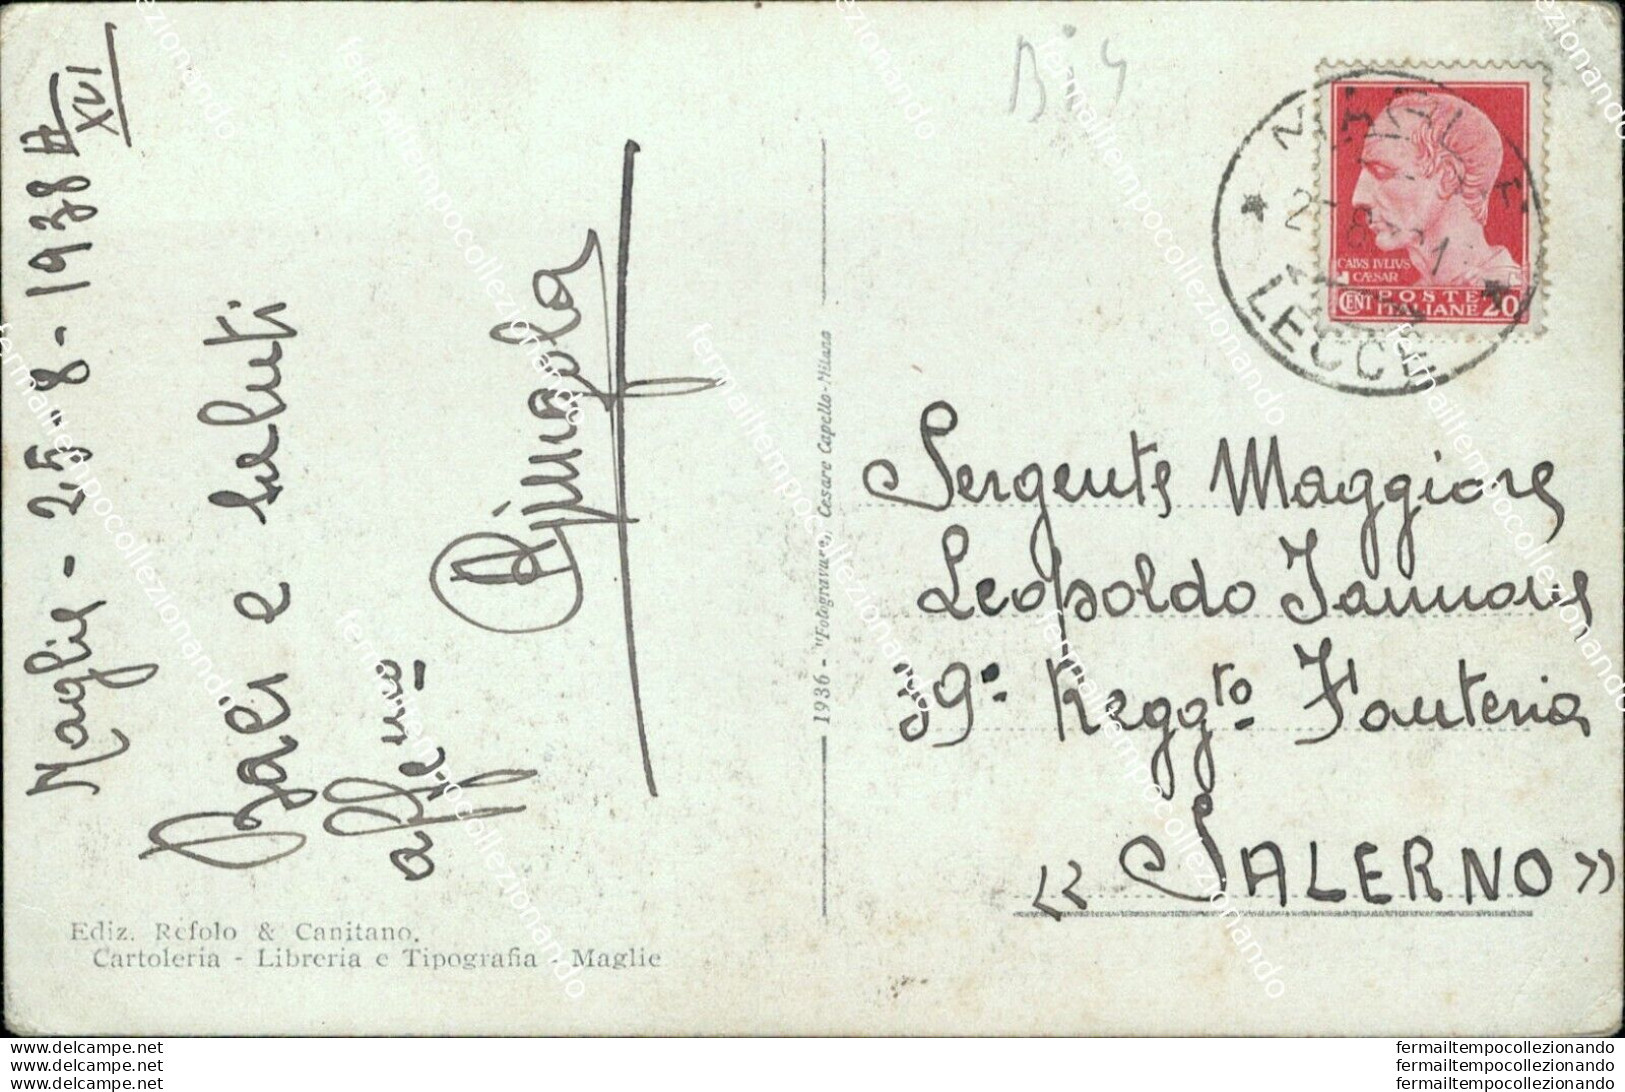 Maglie - 25-8-1938
XVI
Baci e saluti
aff.mo
Bis
MAGLIE
LECCE
CAIVS IVLIVS
CÆSAR
CENT POSTE 20
ITALIANE
Sergente Maggiore
Leopoldo Iannone
39° Reggto Fanteria
« SALERNO »
1936 - "Fotogravure,, Cesare Capello-Milano
Ediz. Refolo & Canitano.
Cartoleria - Libreria e Tipografia - Maglie
fermailtempocollezionando
www.delcampe.net
www.delcampe.net
www.delcampe.net
fermailtempocollezionando
fermailtempocollezionando
fermailtempocollezionando